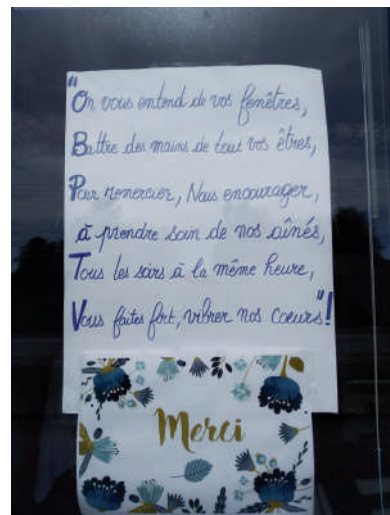 "On vous entend de vos fenêtres,
Battre des mains de tout vos êtres,
Pour remercier, Nous encourager,
à prendre soin de nos aînés,
Tous les soirs à la même heure,
Vous faites fort, vibrer nos coeurs"!
Merci